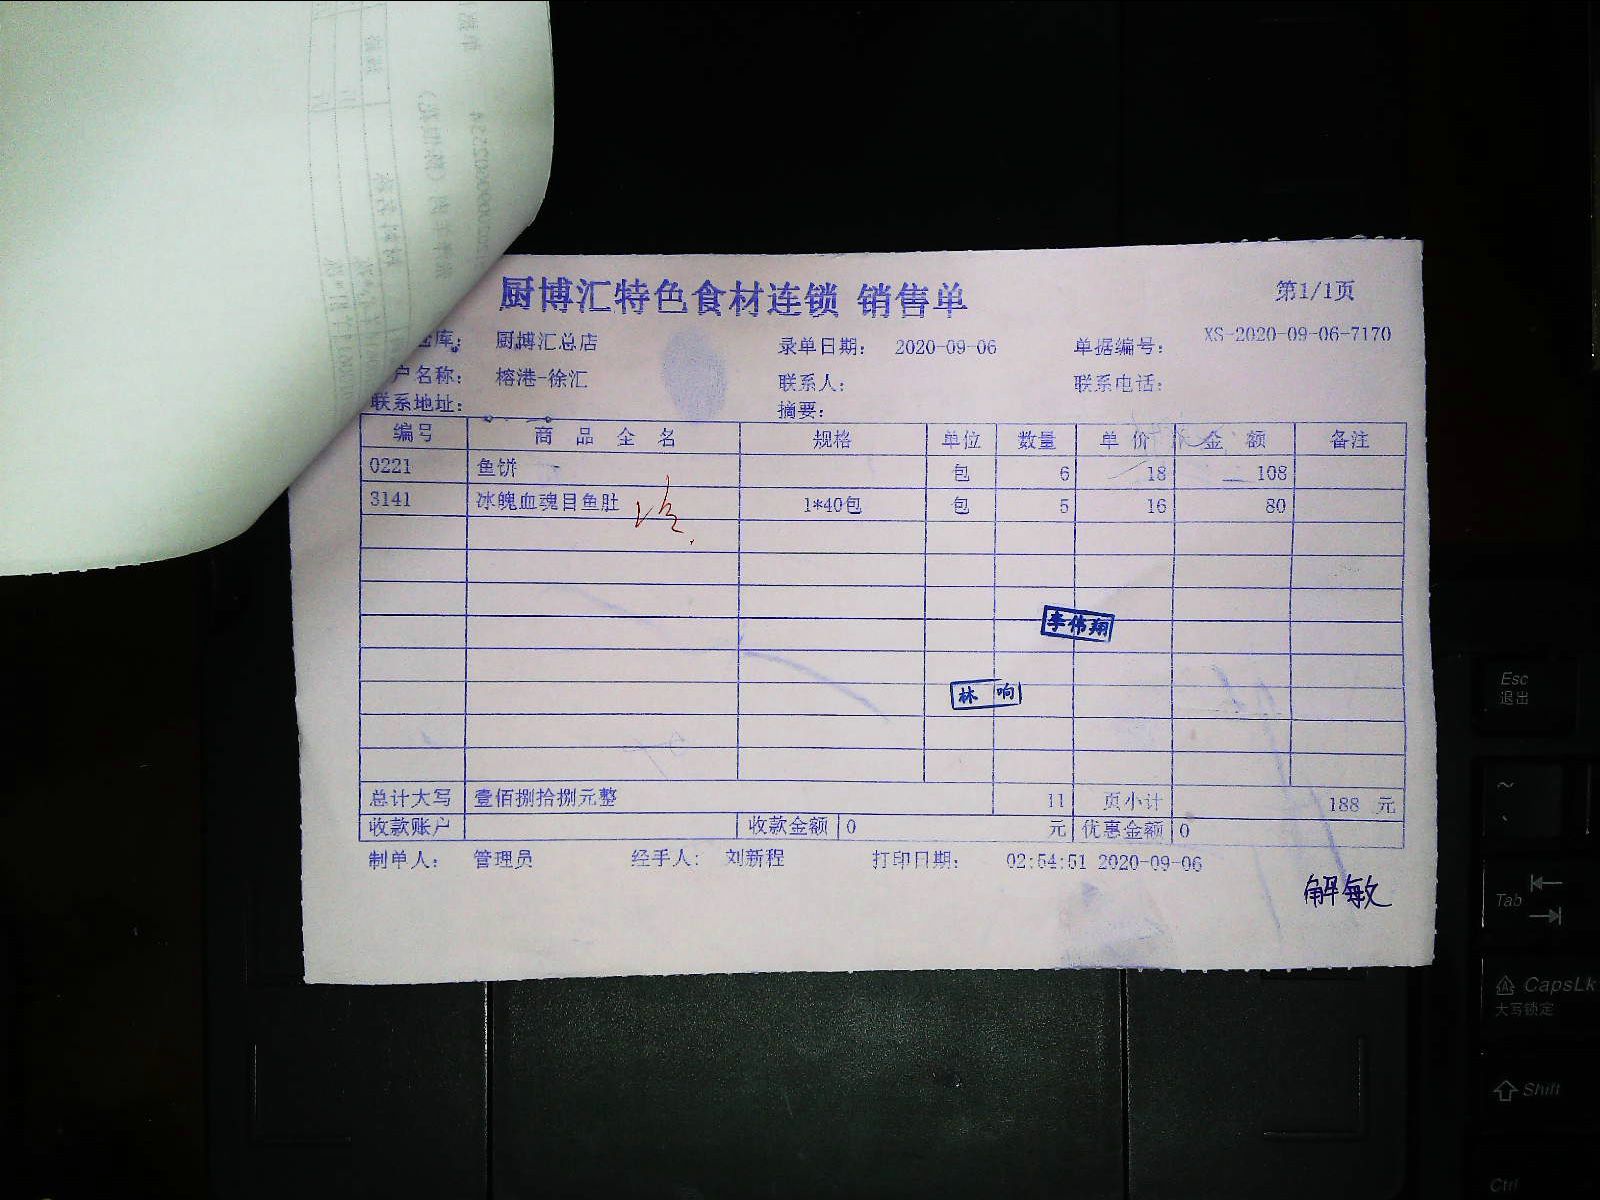 厨博汇特色食材连锁 销售单
第1/1页
库: 厨博汇总店 录单日期: 2020-09-06 单据编号: XS-2020-09-06-7170
户名称: 榕港-徐汇 联系人: 联系电话:
联系地址: 摘要:
编号 商品全名 规格 单位 数量 单价 金额 备注
0221 鱼饼 包 6 18 108
3141 冰魄血魂目鱼肚 1*40包 包 5 16 80
李伟翔
林响
总计大写 壹佰捌拾捌元整 11 页小计 188 元
收款账户 收款金额 0 元 优惠金额 0
制单人: 管理员 经手人: 刘新程 打印日期: 02:54:51 2020-09-06
解敏
Esc
退出
~
Tab
CapsLk
大写锁定
Shift
Ctrl